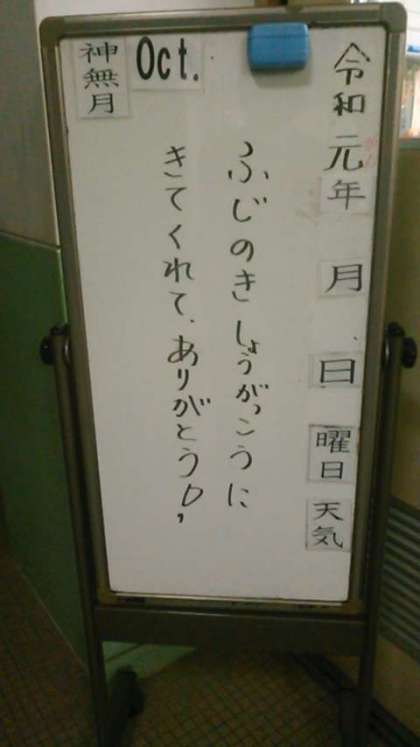 令和元年 月 日 曜日 天気
ふじのきしょうがっこうに
きてくれて、ありがとう。
Oct.
神無月